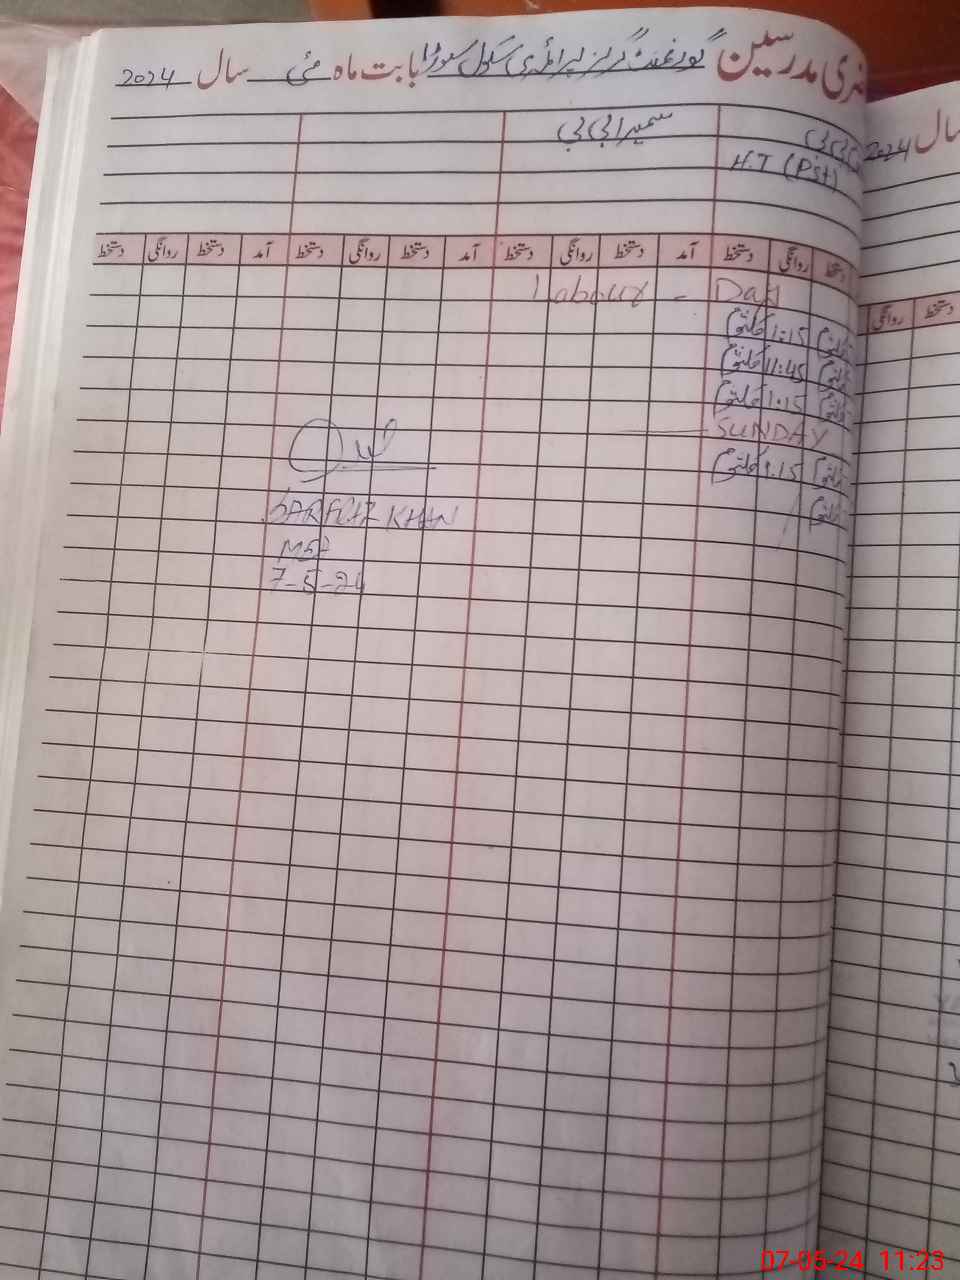 ضری مدرسین گورنمنٹ گرلز پرائمری سکول سوڑا بابت ماہ مئی سال 2024
سمیرا بی بی
بی بی
H.T (Pst)
دستخط روانگی دستخط آمد دستخط روانگی دستخط آمد دستخط روانگی دستخط آمد دستخط روانگی دستخط
Labour - Day
کلثوم 1:15 کلثوم
کلثوم 11:45 کلثوم
کلثوم 1:15 کلثوم
SUNDAY
کلثوم 1.15 کلثوم
کلثوم
SARFRAZ KHAN
7-5-24
سال 2024
دستخط روانگی
07-05-24 11:23